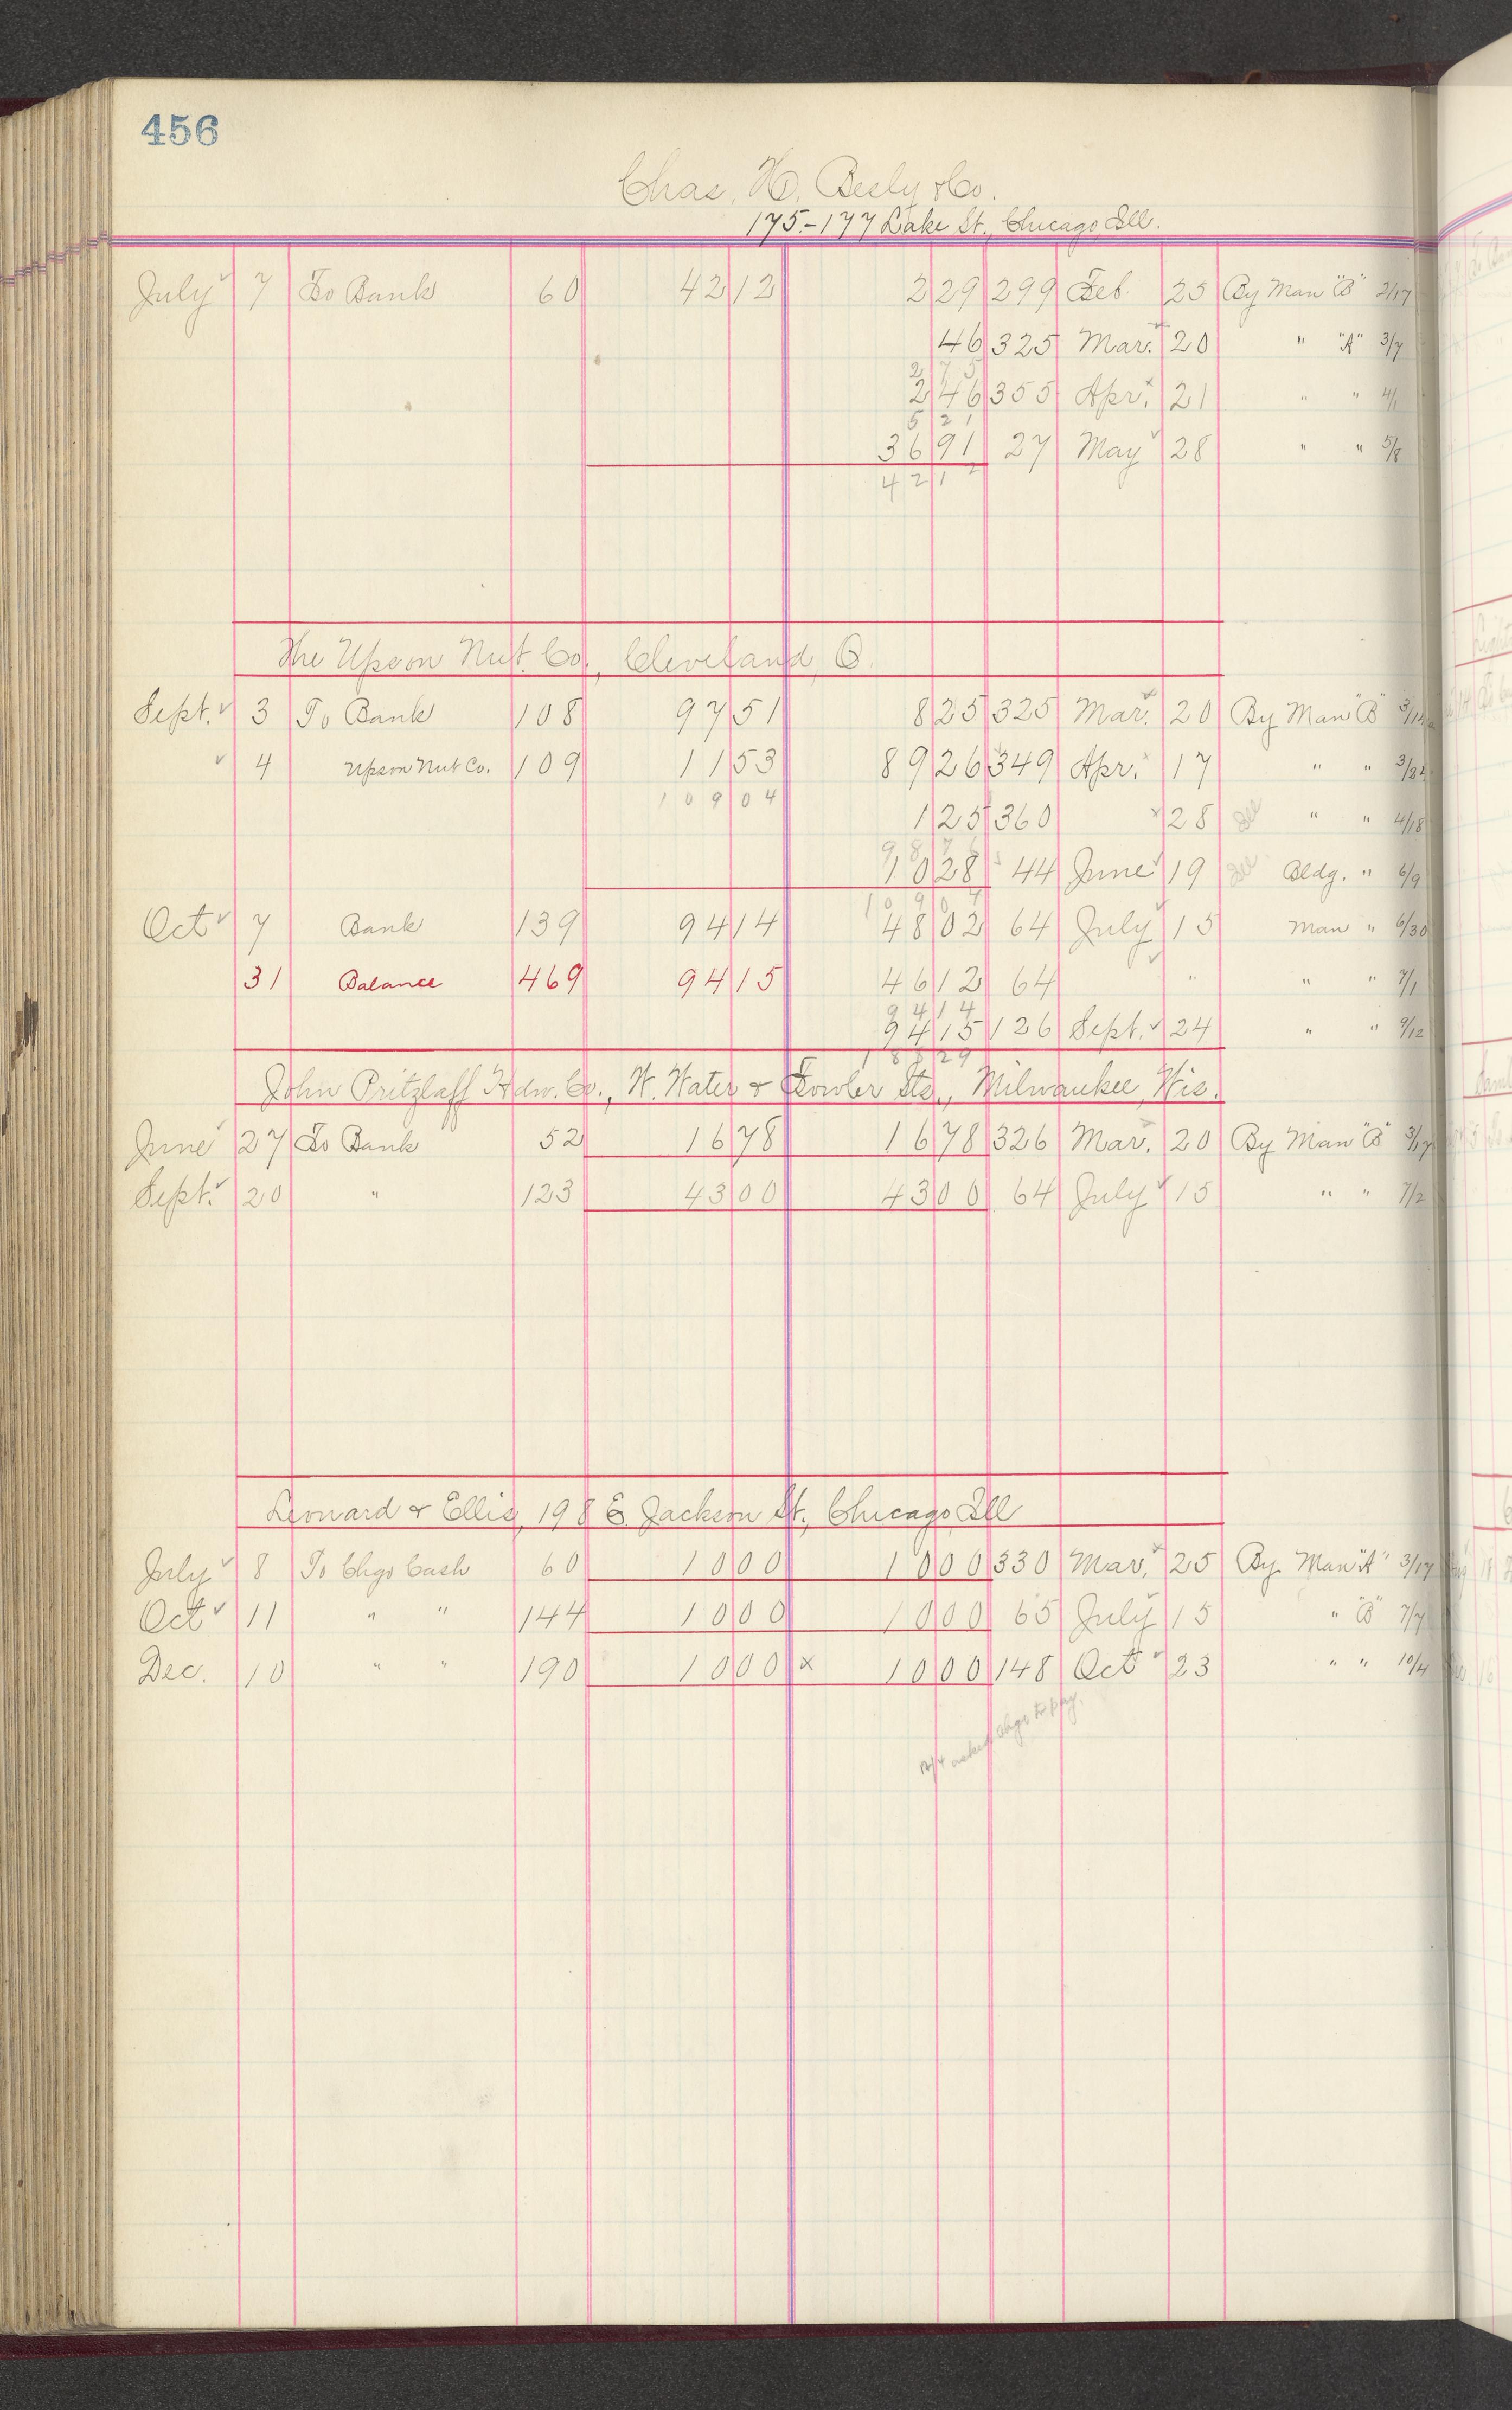 456
Chas. H. Besly & Co.
175-177 Lake St., Chicago, Ill.
July 7 To Bank 60 42 12 2 29 299 Feb. 25 By Man "B" 2/17
46 325 Mar. 20 " "A" 3/7
2 75
2 46 355 Apr. 21 " " 4/1
5 21
36 91 27 May 28 " " 5/8
42 12
The Upson Nut Co., Cleveland, O.
Sept. 3 To Bank 108 97 51 8 25 325 Mar. 20 By Man "B"
4 Upson Nut Co. 109 11 53 89 26 349 Apr. 17 " "
109 04 1 25 360 28 " " 4/18
98 76
10 28 44 June 19 Bldg. " 6/9
109 04
Oct 7 Bank 139 94 14 48 02 64 July 15 Man " 6/30
31 Balance 469 94 15 46 12 64 " " " 7/1
94 14
94 15 126 Sept. 24 " " 9/12
188 29
John Pritzlaff Hdw. Co., W. Water & Fowler Sts., Milwaukee, Wis.
June 27 To Bank 52 16 78 16 78 326 Mar. 20 By Man "B" 3/17
Sept. 20 " 123 43 00 43 00 64 July 15 " " 7/2
Leonard & Ellis, 198 E. Jackson St., Chicago, Ill
July 8 To Chgo Cash 60 10 00 10 00 330 Mar. 25 By Man "A" 3/17
Oct 11 " " 144 10 00 10 00 65 July 15 " "B" 7/7
Dec. 10 " " 190 10 00 x 10 00 148 Oct 23 " " 10/4
asked Chgo to pay.